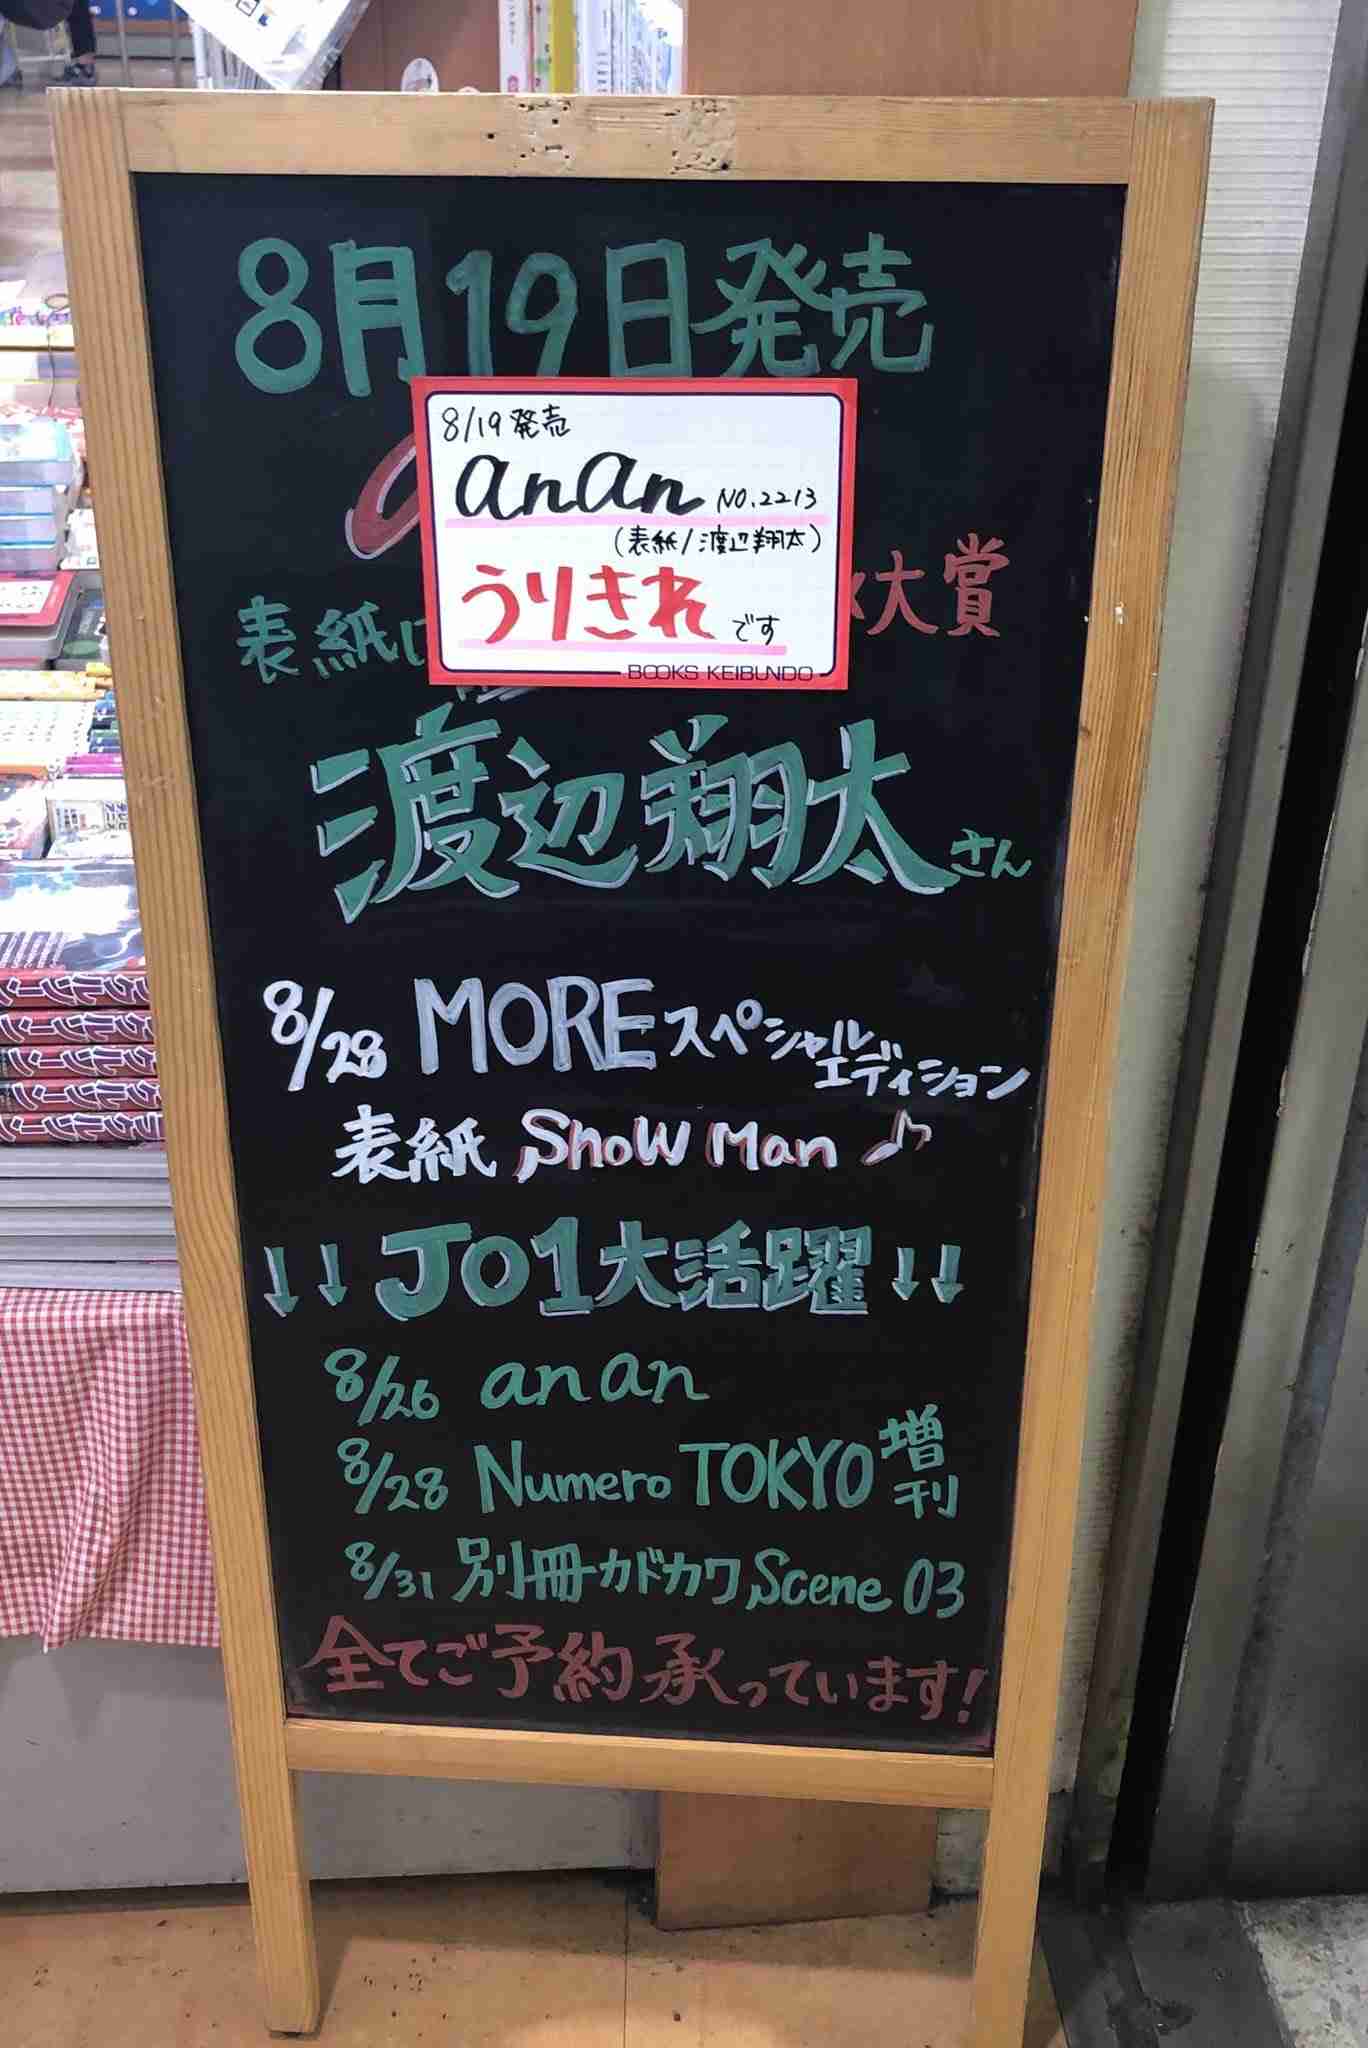 8月19日発売
8/19 発売
anan NO.2213
(表紙/渡辺翔太)
うりきれです
BOOKS KEIBUNDO
大賞
表紙に
渡辺翔太さん
8/28 MORE スペシャルエディション
表紙 SnowMan♪
↓↓ JO1大活躍 ↓↓
8/26 anan
8/28 Numero TOKYO 増刊
8/31 別冊カドカワScene 03
全てご予約承っています!